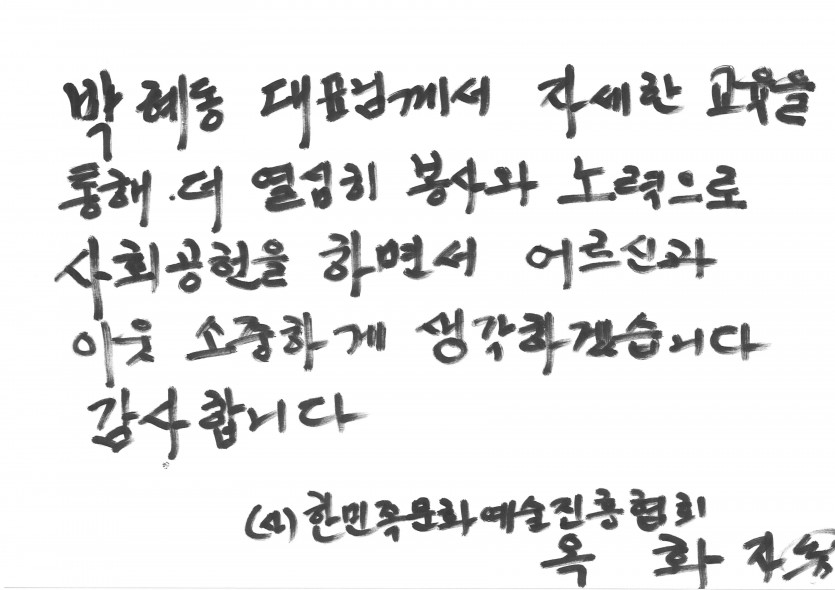 박혜동 대표님께서 자세한 교육을
통해 더 열심히 봉사와 노력으로
사회공헌을 하면서 어르신과
이웃 소중하게 생각하겠습니다
감사합니다
(사)한민족문화예술진흥협회
옥 화